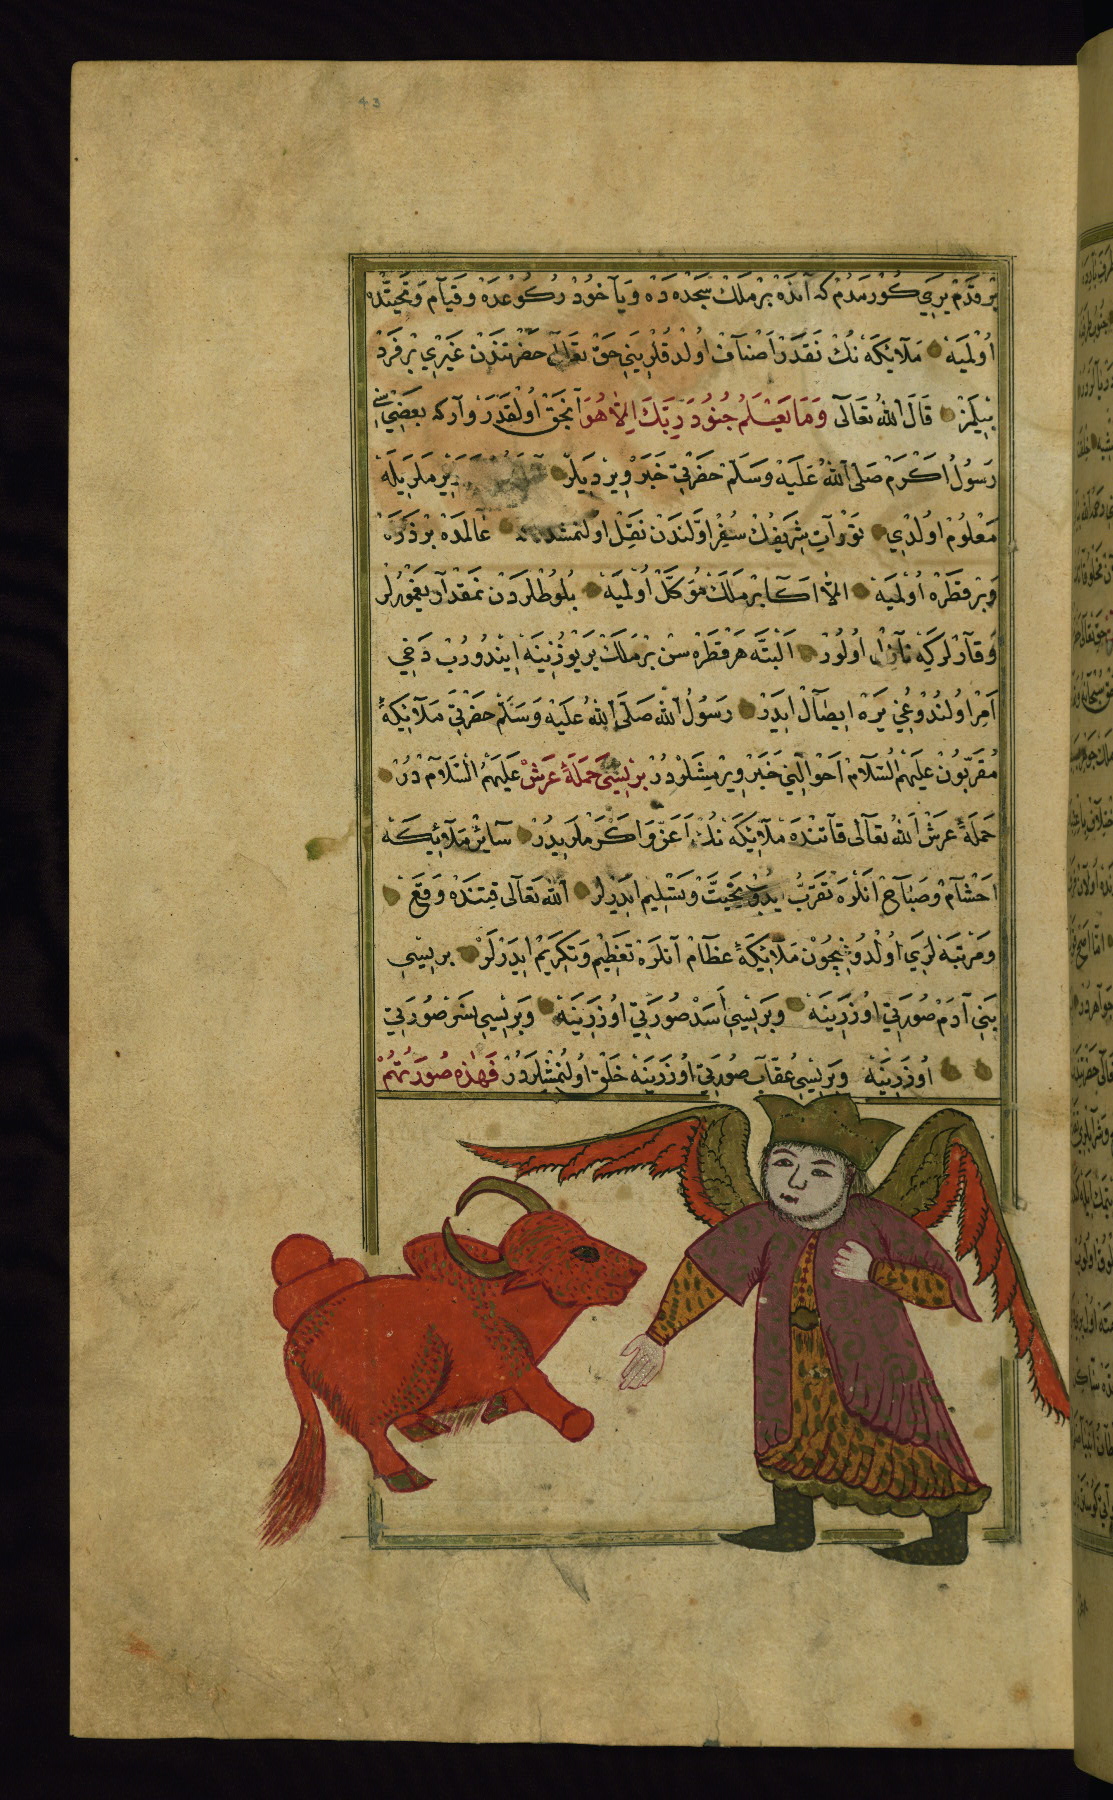 43
بِرْ قَدَمْ يِرِي كُورْمَدُمْ كه آنْدَه بِرْ مَلَكْ سَجْدَه دَه وَيَاخُودْ رُكُوعْدَه وَقِيَامْ وَتَحِيَّتْدَه
اُولْمَيَه مَلَائِكَه نُكْ نَقَدَرْ اَصْنَافْ اُولْدُقْلَرِينِي حَقْ تَعَالَى حَضْرَتِنْدَنْ غَيْرِي بِرْ فَرْدْ
بِيلْمَزْ قَالَ اللهُ تَعَالَى وَمَا يَعْلَمُ جُنُودَ رَبِّكَ اِلَّا هُوَ آنْجَقْ اُولْقَدَرْ وَارْكه بَعْضِيسِي
رَسُولُ اَكْرَمْ صَلَّى اللهُ عَلَيْهِ وَسَلَّمْ حَضْرَتِي خَبَرْ وِيرْدِيلَرْ
مَعْلُومْ اُولْدِي تَوْرَاتِ شَرِيفُكْ سِفْرِ اَوَّلِنْدَنْ نَقِلْ اُولُنْمِشْدُرْ عَالَمْدَه بِرْ ذَرَّه
وَبِرْ قَطْرَه اُولْمَيَه اِلَّا اَكَا بِرْ مَلَكْ مُوَكَّلْ اُولْمَيَه بُلُوطْلَرْدَنْ نَمِقْدَارْ يَغْمُورْلَرْ
وَقَارْلَرْكِه نَازِلْ اُولُورْ اَلْبَتَّه هَرْ قَطْرَه سِنْ بِرْ مَلَكْ يِرْ يُوزِينَه اِينْدُورُبْ دَخِي
اَمِرْ اُولُنْدُوغِي يَرَه اِيصَالْ اِيدَرْ رَسُولُ اللهْ صَلَّى اللهُ عَلَيْهِ وَسَلَّمْ حَضْرَتِي مَلَائِكَهٔ
مُقَرَّبُونْ عَلَيْهِمُ السَّلَامْ اَحْوَالِنِي خَبَرْ وِيرْمِشْلَرْدُرْ بِرْيسِي حَمَلَهٔ عَرَشْ عَلَيْهِمُ السَّلَامْ دُرْ
حَمَلَهٔ عَرَشْ اللهُ تَعَالَى قَاتِنْدَه مَلَائِكَه نُكْ اَعَزّ وَاَكْرَمْلَرِيدُرْ سَائِرْ مَلَائِكَه
اَخْشَامْ وَصَبَاحْ اَنْلَرَه تَقَرُّبْ اِيدُوبْ تَحِيَّتْ وَتَسْلِيمْ اِيدَرْلَرْ اللهُ تَعَالَى قَتِنْدَه وَقْعْ
وَمَرْتَبَه لَرِي اُولْدُوغِيچُونْ مَلَائِكَهٔ عِظَامْ آنْلَرَه تَعْظِيمْ وَتَكْرِيمْ اِيدَرْلَرْ بِرِيسِي
بَنِي آدَمْ صُورَتِي اُوزَرِينَه وَبِرِيسِي اَسَدْ صُورَتِي اُوزَرِينَه وَبِرِيسِي نَسَرْ صُورَتِي
اُوزَرِينَه وَبِرِيسِي عُقَابْ صُورَتِي اُوزَرِينَه خَلْقْ اُولُنْمِشْلَرْدُرْ فَهٰذِه صُورَتُهُمْ